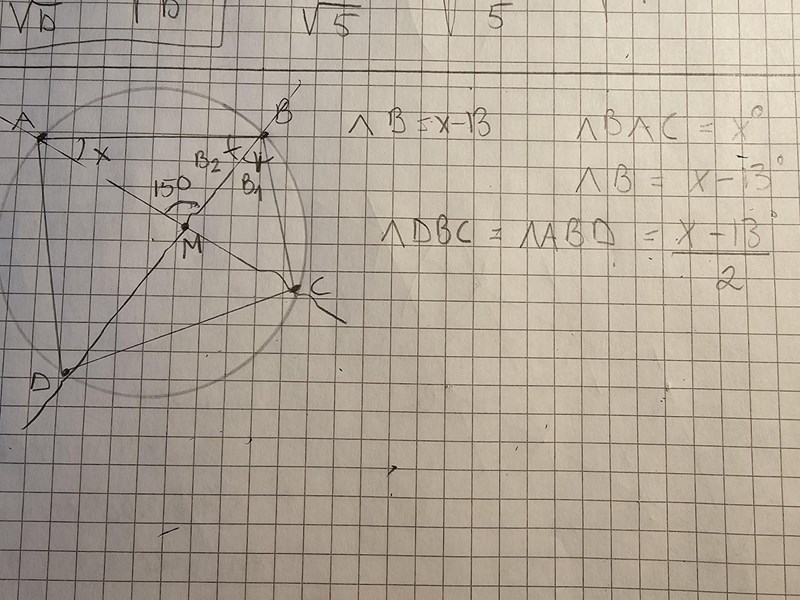 √D
√5
√5
A
B
x
B₂
B₁
150
M
C
D
∧ B = x-13
∧ BAC = x°
∧ B = x-13°
∧ DBC = ∧ABD = x-13°
2